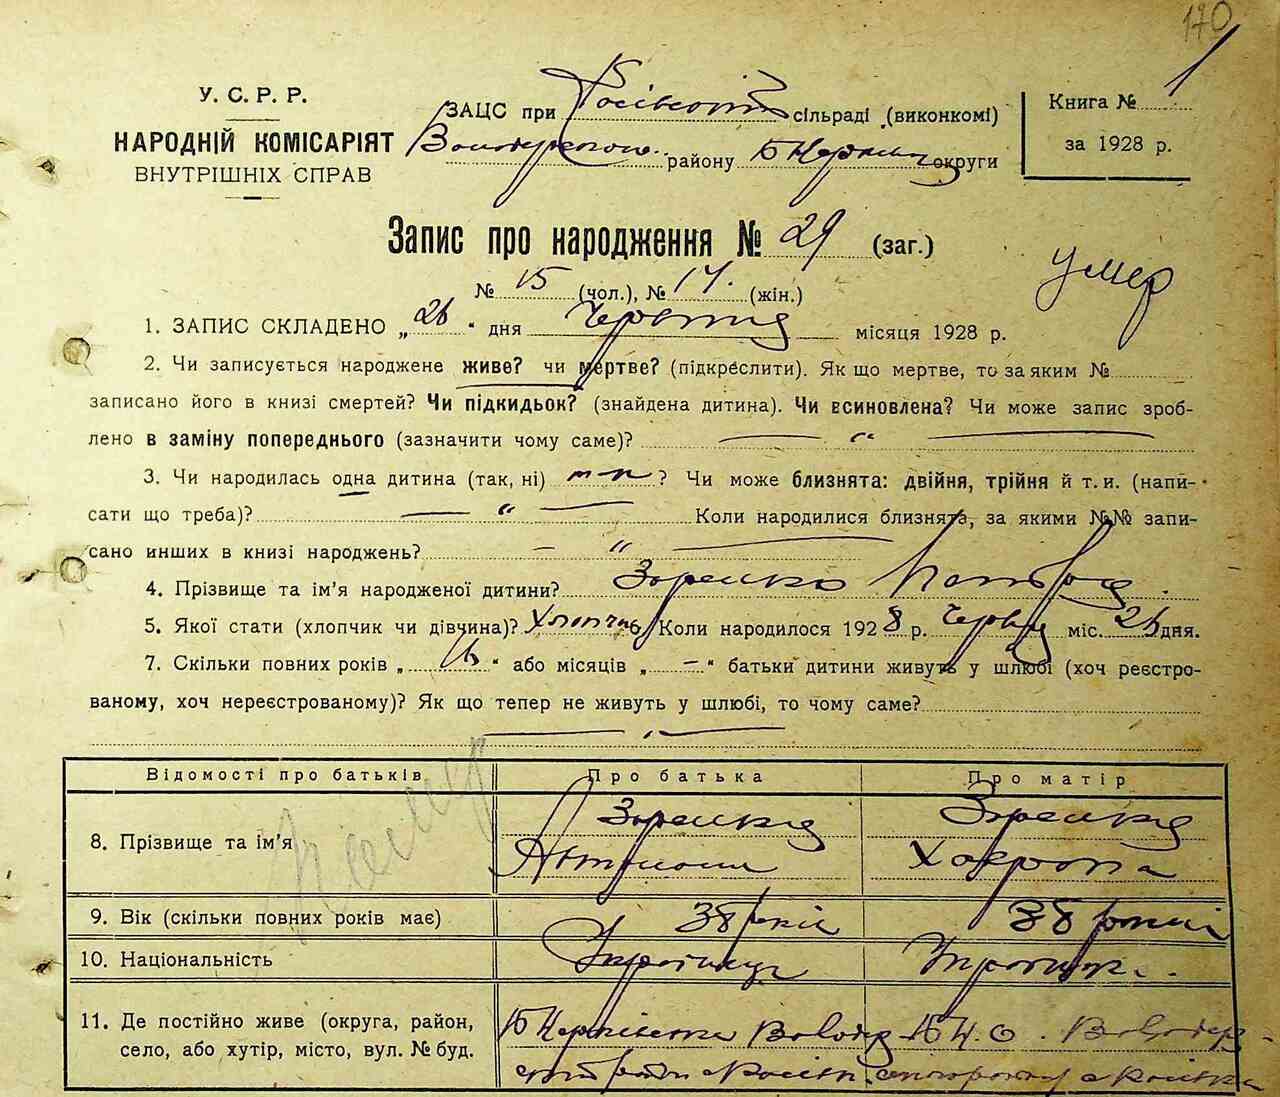 170
У. С. Р. Р.
НАРОДНІЙ КОМІСАРІЯТ
ВНУТРІШНІХ СПРАВ
ЗАЦС при сільраді (виконкомі)
району Б Церків округи
Книга № 1
за 1928 р.
Запис про народження № 29 (заг.)
умер
№ 15 (чол.), № 14. (жін.)
1. ЗАПИС СКЛАДЕНО „ 26 “ дня Червня місяця 1928 р.
2. Чи записується народжене живе? чи мертве? (підкреслити). Як що мертве, то за яким №
записано його в книзі смертей? Чи підкидьок? (знайдена дитина). Чи всиновлена? Чи може запис зроб-
лено в заміну попереднього (зазначити чому саме)? — “ —
3. Чи народилась одна дитина (так, ні) ? Чи може близнята: двійня, трійня й т. и. (напи-
сати що треба)? — “ — Коли народилися близнята, за якими №№ запи-
сано инших в книзі народжень? — “ —
4. Прізвище та ім'я народженої дитини? Зоренко
5. Якої стати (хлопчик чи дівчина)? Хлопчик Коли народилося 1928 р. Червня міс. 26 дня.
7. Скільки повних років „ 16 “ або місяців „ — “ батьки дитини живуть у шлюбі (хоч реєстро-
ваному, хоч нереєстрованому)? Як що тепер не живуть у шлюбі, то чому саме?
Відомості про батьків Про батька Про матір
8. Прізвище та ім'я Зоренко Зоренко
Антон Хаврона
9. Вік (скільки повних років має) 38 років 38 років
10. Національність Українець Українка
11. Де постійно живе (округа, район,
село, або хутір, місто, вул. № буд.